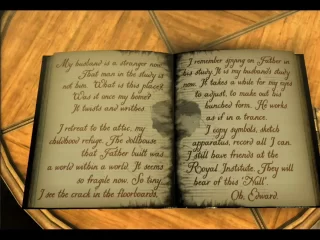 My husband is a stranger now.
That man in the study is
not him. What is this place?
Was it once my home?
It twists and writhes.
I retreat to the attic, my
childhood refuge. The dollhouse
that Father built was
a world within a world. It seems
so fragile now. So tiny.
I see the crack in the floorboards.
I remember spying on Father in
his study. It is my husband's study
now. It takes a while for my eyes
to adjust, to make out his
hunched form. He works
as if in a trance.
I copy symbols, sketch
apparatus, record all I can.
I still have friends at the
Royal Institute. They will
hear of this "Null".
Oh, Edward.